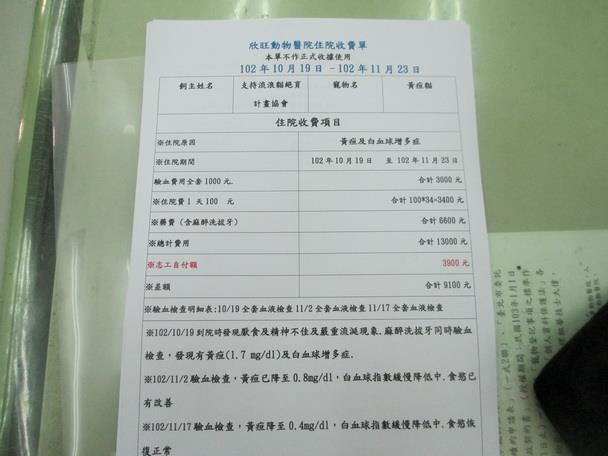 欣旺動物醫院住院收費單
本單不作正式收據使用
102 年 10 月 19 日 －102 年 11 月 23 日
飼主姓名 支持流浪貓絕育計畫協會 寵物名 黃疸貓
住院收費項目
※住院原因 黃疸及白血球增多症
※住院期間 102 年 10 月 19 日 至 102 年 11 月 23 日
驗血費用全套 1000 元. 合計 3000 元
※住院費 1 天 100 元 合計 100*34=3400 元
※藥費 (含麻醉洗拔牙) 合計 6600 元
※總計費用 合計 13000 元
※志工自付額 3900 元
※差額 合計 9100 元
※驗血檢查明細表:10/19 全套血液檢查 11/2 全套血液檢查 11/17 全套血液檢查
※102/10/19 到院時發現厭食及精神不佳及嚴重流涎現象.麻醉洗拔牙同時驗血
檢查，發現有黃疸(1.7 mg/dl)及白血球增多症.
※102/11/2 驗血檢查，黃疸已降至 0.8mg/dl，白血球指數緩慢降低中.食慾已
有改善
※102/11/17 驗血檢查，黃疸降至 0.4mg/dl，白血球指數緩慢降低中.食慾恢
復正常